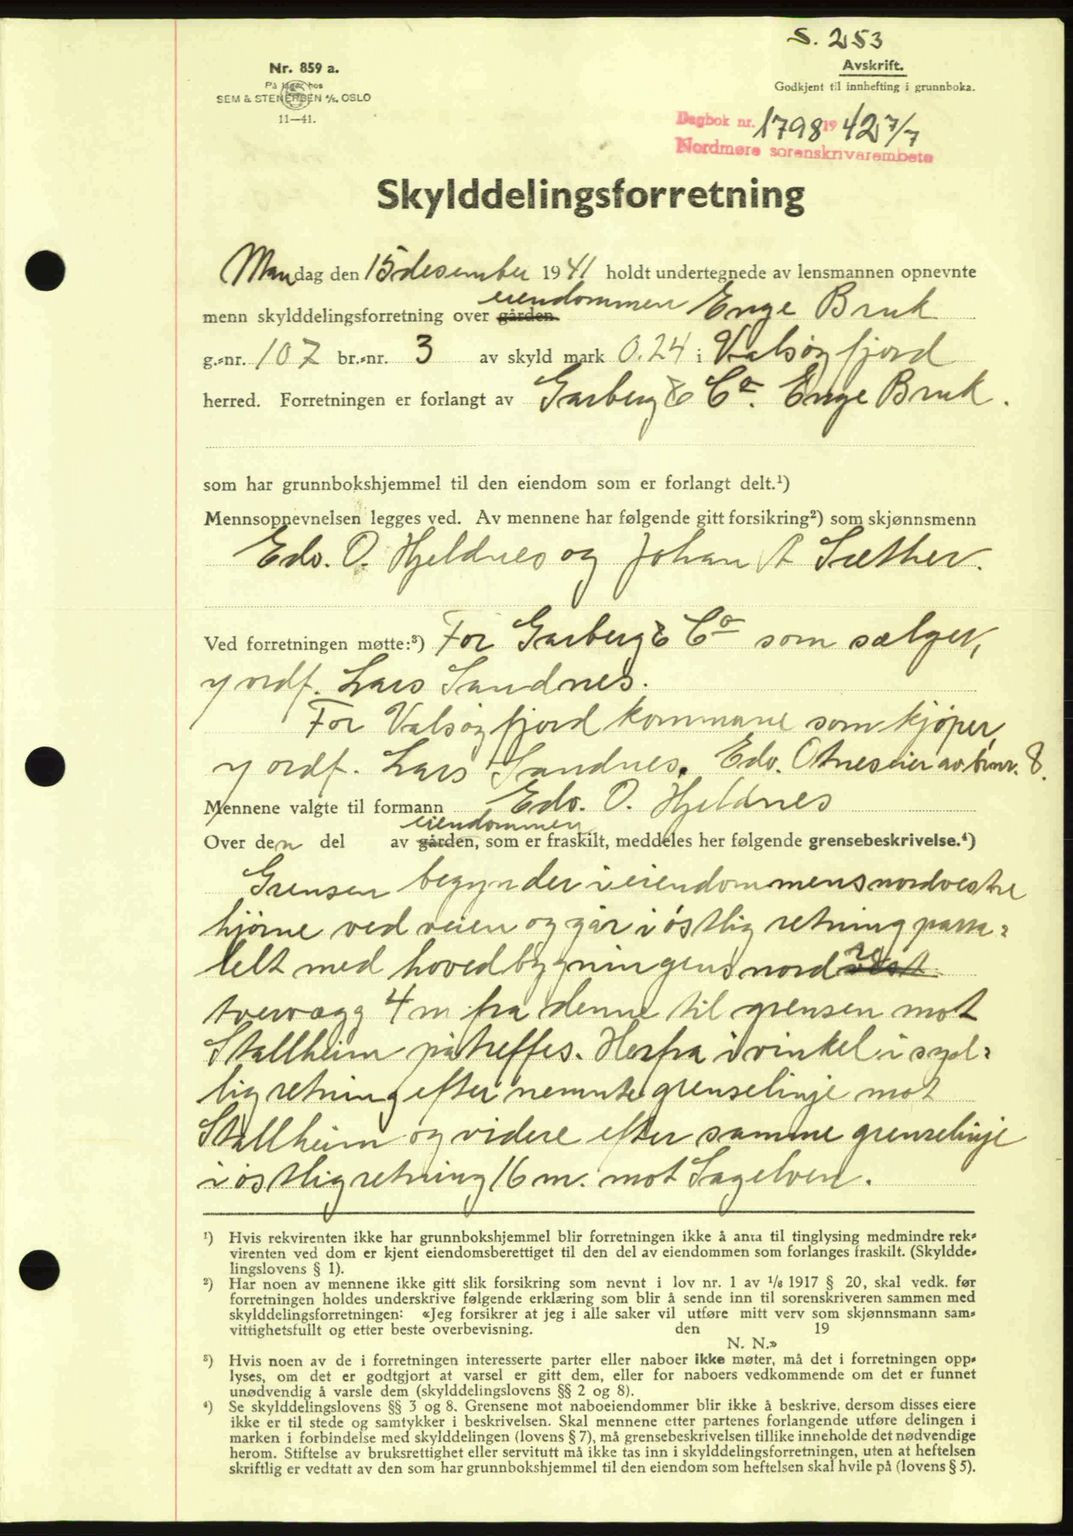 S. 253
Nr. 859 a.
På lager hos
SEM & STENERSEN A/S. OSLO
11—41.
Avskrift.
Godkjent til innhefting i grunnboka.
Dagbok nr. 1798 1942 7/7
Nordmøre sorenskrivarembete
Skylddelingsforretning
Mandag den 15 desember 1941 holdt undertegnede av lensmannen opnevnte
eiendommen
menn skylddelingsforretning over gården Enge Bruk
g.-nr. 107 br.-nr. 3 av skyld mark 0.24 i Valsøyfjord
herred. Forretningen er forlangt av Garberg & Co. Enge Bruk.
som har grunnbokshjemmel til den eiendom som er forlangt delt.¹)
Mennsopnevnelsen legges ved. Av mennene har følgende gitt forsikring²) som skjønnsmenn
Edv. O. Hjeldnes og Johan A Sæther.
Ved forretningen møtte:³) For Garberg & Co som sælger,
v ordf. Lars Sandnes.
For Valsøyfjord kommune som kjøper,
v ordf. Lars Sandnes. Edv. Otnes eier av br.nr. 8.
Mennene valgte til formann Edv. O. Hjeldnes
eiendommen
Over den del av gården, som er fraskilt, meddeles her følgende grensebeskrivelse.⁴)
Grensen begynder i eiendommens nordvestre
hjørne ved veien og går i østlig retning para-
lelt med hovedbygningens nordre vest
tvervægg 4 m fra denne til grensen mot
Stallheim påtreffes. Herfra i vinkel i syd-
lig retning efter nemnte grenselinje mot
Stallheim og videre efter samme grenselinje
i østlig retning 16 m. mot Sagelven.
¹) Hvis rekvirenten ikke har grunnbokshjemmel blir forretningen ikke å anta til tinglysing medmindre rek-
virenten ved dom er kjent eiendomsberettiget til den del av eiendommen som forlanges fraskilt. (Skyldde-
lingslovens § 1).
²) Har noen av mennene ikke gitt slik forsikring som nevnt i lov nr. 1 av 1/6 1917 § 20, skal vedk. før
forretningen holdes underskrive følgende erklæring som blir å sende inn til sorenskriveren sammen med
skylddelingsforretningen: «Jeg forsikrer at jeg i alle saker vil utføre mitt verv som skjønnsmann sam-
vittighetsfullt og etter beste overbevisning. den 19
N. N.»
³) Hvis noen av de i forretningen interesserte parter eller naboer ikke møter, må det i forretningen opp-
lyses, om det er godtgjort at varsel er gitt dem, eller for naboers vedkommende om det er funnet
unødvendig å varsle dem (skylddelingslovens §§ 2 og 8).
⁴) Se skylddelingslovens §§ 3 og 8. Grensene mot naboeiendommer blir ikke å beskrive, dersom disses eiere
ikke er til stede og samtykker i beskrivelsen. Skal mennene etter partenes forlangende utføre delingen i
marken i forbindelse med skylddelingen (lovens § 7), må grensebeskrivelsen tillike inneholde det nødvendige
herom. Stiftelse av bruksrettighet eller servitutt må ikke tas inn i skylddelingsforretningen, uten at heftelsen
skriftlig er vedtatt av den som har grunnbokshjemmel til den eiendom som heftelsen skal hvile på (lovens § 5).